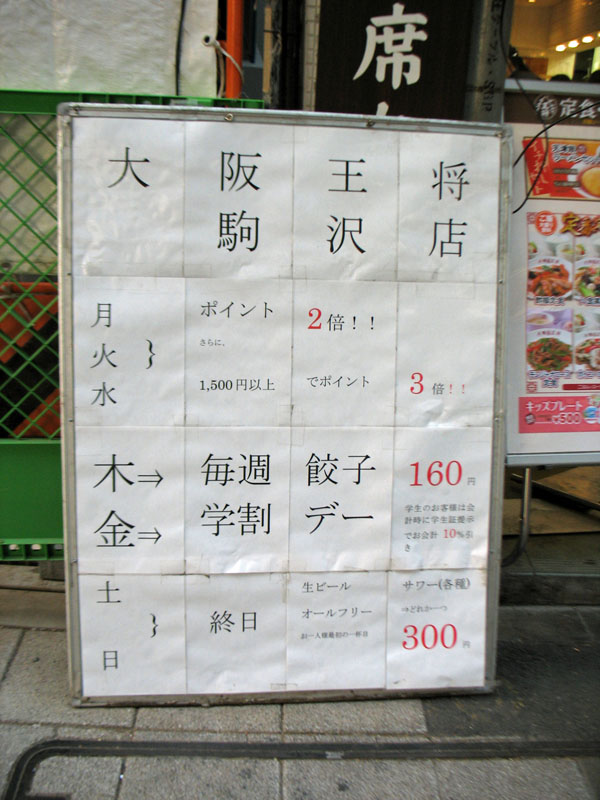 席
定食
大阪王将
駒沢店
月
火
水
ポイント 2倍！！
さらに、
1,500円以上 でポイント 3倍！！
木⇒ 毎週 餃子 160円
金⇒ 学割 デー
学生のお客様は会
計時に学生証提示
でお会計 10%引
き
土
日
終日
生ビール
オールフリー
お一人様最初の一杯目
サワー(各種)
⇒どれか一つ
300円
キッズプレート
¥500